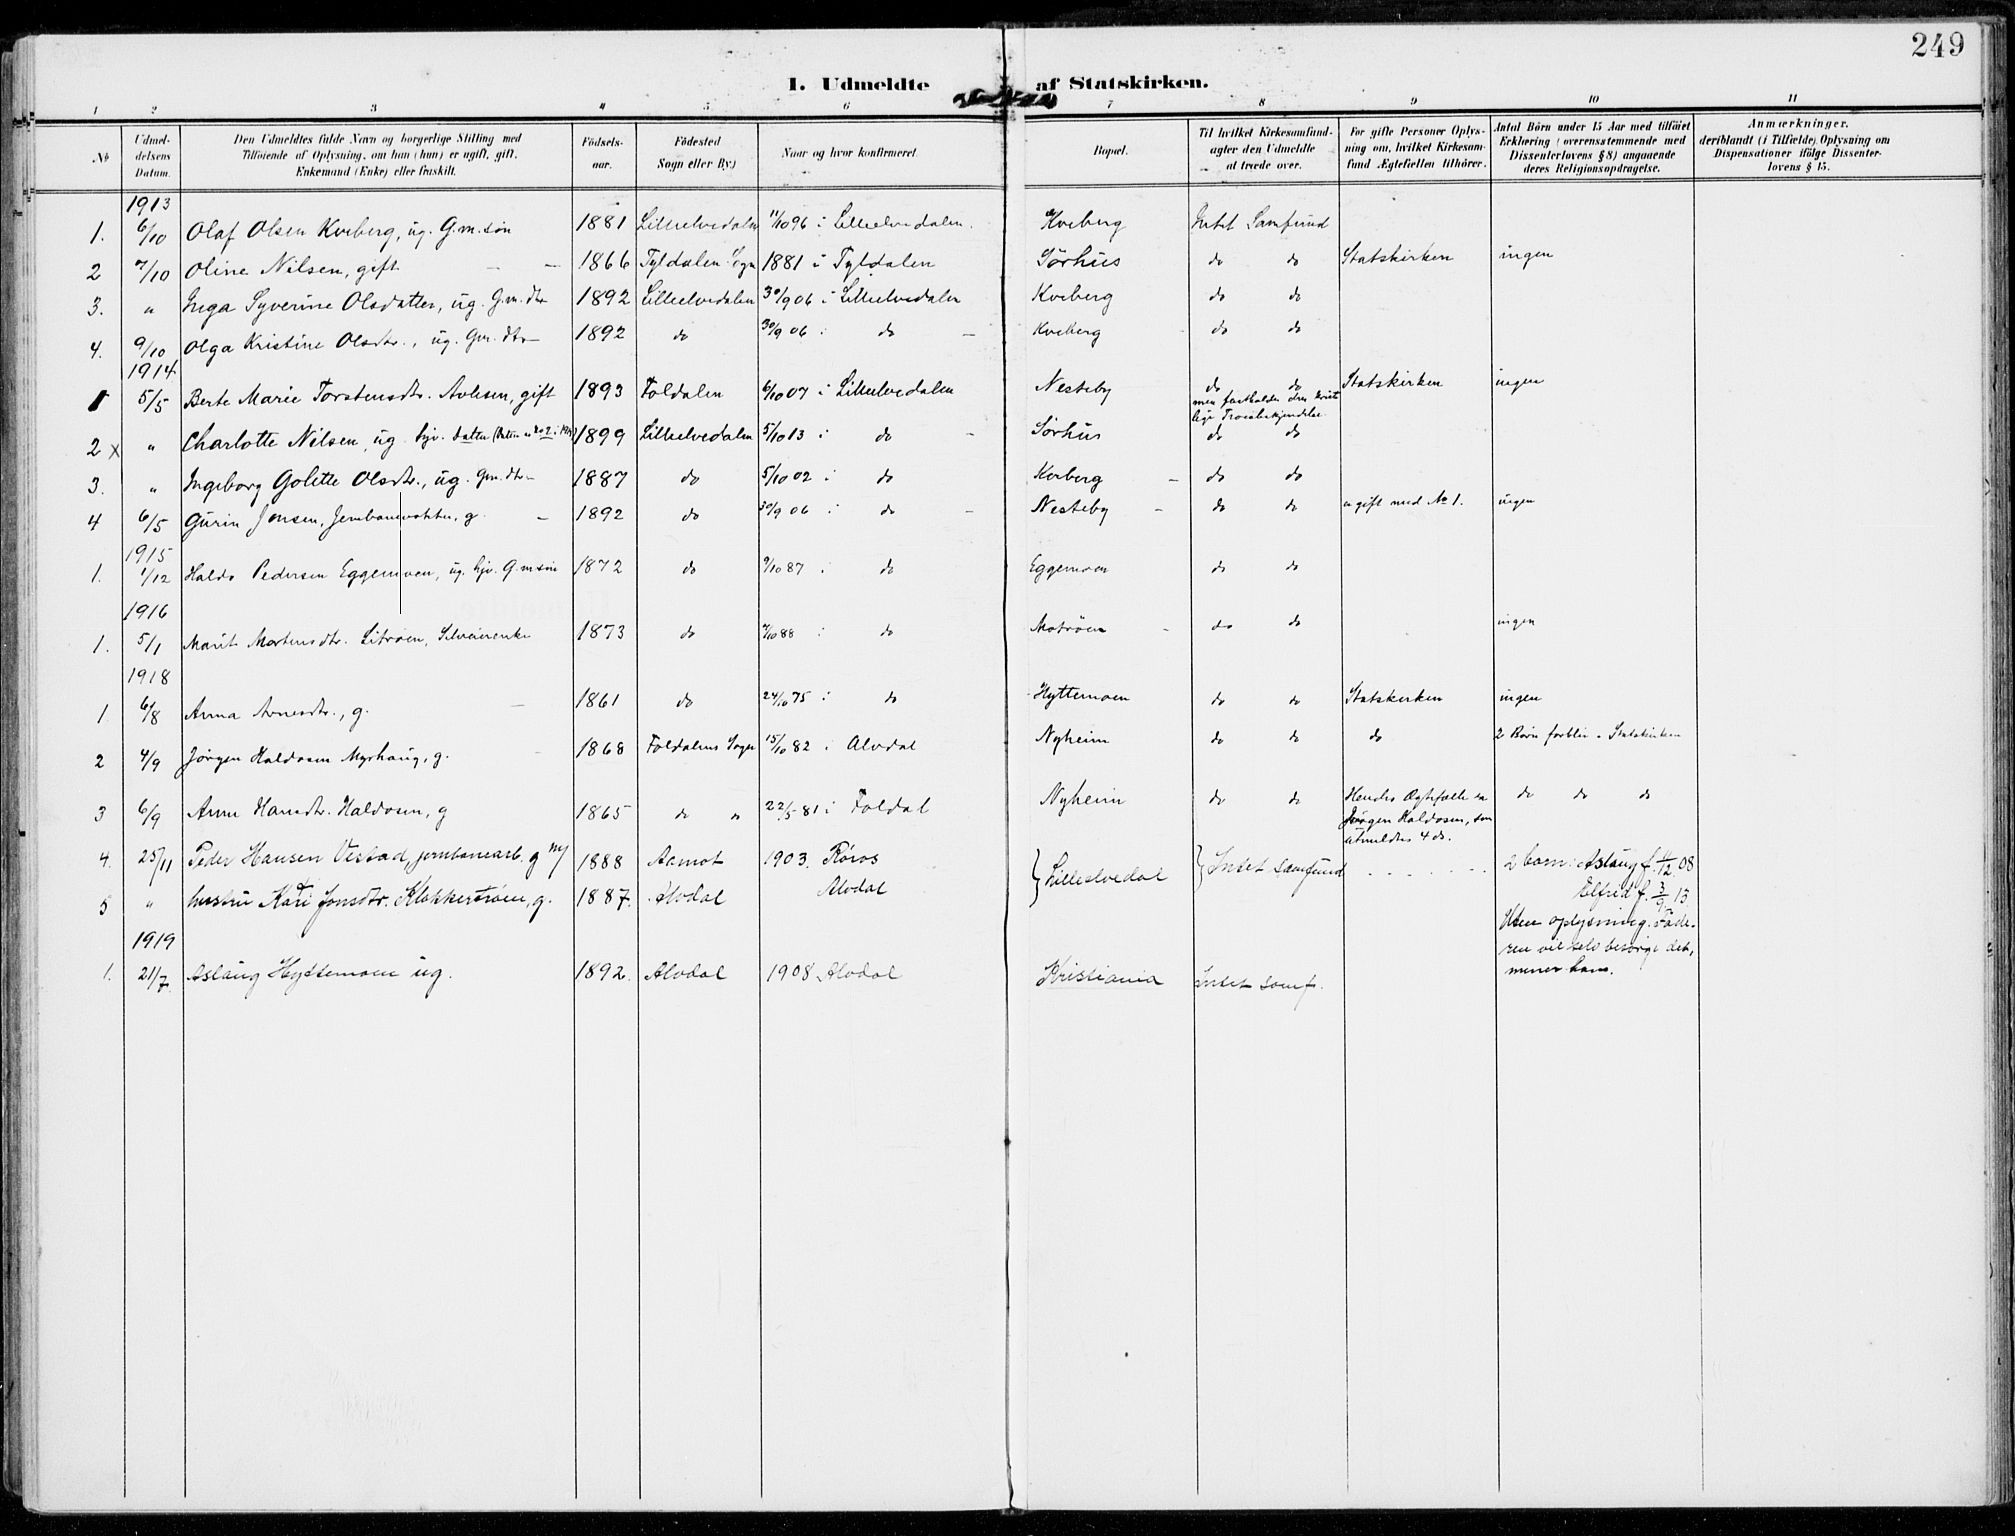 249
I. Udmeldte af Statskirken.
1 2 3 4 5 6 7 8 9 10 11
No
Udmel-
delsens
Datum.
Den Udmeldtes fulde Navn og borgerlige Stilling med
Tilföiende af Oplysning, om han (hun) er ugift, gift,
Enkemand (Enke) eller fraskilt.
Födsels-
aar.
Födested
Sogn eller By.)
Naar og hvor konfirmeret.
Bopæl.
Til hvilket Kirkesamfund-
agter den Udmeldte
at træde over.
For gifte Personer Oplys-
ning om, hvilket Kirkesam-
fund Ægtefællen tilhører.
Antal Börn under 15 Aar med tilföiet
Erklæring (overensstemmende med
Dissenterlovens § 8) angaaende
deres Religionsopdragelse.
Anmærkninger.
deriblandt (i Tilfælde) Oplysning om
Dispensationer ifölge Dissenter-
lovens § 15.
1913
1. 6/10 Olaf Olsen Kveberg, ug. G.m.søn 1881 Lilleelvedalen 11/10 96 i Lilleelvedalen. Kveberg Intet Samfund
2 7/10 Oline Nilsen, gift — — 1866 Tyldalen Sogn 1881 i Tyldalen Sørhus do do Statskirken ingen
3. " Inga Syverine Olsdatter, ug. G.m. dtr 1892 Lilleelvedalen 30/9 06 i Lilleelvedalen Kveberg do do
4. 9/10 Olga Kristine Olsdtr., ug. Gm. dtr — 1892 do 30/9 06 i do — Kveberg do do
1914
1 5/5 Berte Marie Torstensdtr. Avlesen, gift 1893 Foldalen 6/10 07 i Lilleelvedalen Nesteby do do Statskirken ingen
men fastholder den krist
lige Troesbekjendelse
2 x " Charlotte Nilsen, ug. 1899 Lilleelvedalen 5/10 13 i do — Sørhus do do
3. " Ingeborg Golette Olsdtr., ug. Gm. dtr — 1887 do 5/10 02 i do Kveberg — do do
4 6/5 Gurin Jonsen, g. — 1892 do 30/9 06 i do — Nesteby — do do " gift med No 1. ingen
1915
1. 1/12 Haldo Pedersen Eggemoen, ug. hjv. G.m søn 1872 do 9/10 87 i do Eggemoen do do
1916
1. 5/1 Marit Mortensdtr. Litrøen, 1873 do 7/10 88 i do Motrøen — do do ingen
1918
1 6/8 Anna Arnesdtr., g. — 1861 do 24/10 75 i do Hyttemoen do do Statskirken ingen
2 4/9 Jørgen Haldosen Myrhaug, g. 1868 Foldalens Sogn 15/10 82 i Alvdal Nyheim do do do 2 Børn forblir i Statskirken
3 6/9 Anne Hansdtr. Haldosen, g 1865 do " 22/5 81 i Foldal Nyheim do do Hendes Ægtefælle er do do do
Jørgen Haldosen, som
utmeldtes 4 ds.
4. 25/11 Peder Hansen Vestad, jernbanearb. g m/ 1888 Aamot 1903. Røros Lilleelvedal Intet samfund . . . . . . . 2 barn: Aslaug f. 11/12 08
5 " hustru Kari Jonsdtr. Klokkerrøen, g. 1887. Alvdal Alvdal Elfrid f. 3/9 13
Uten oplysning. Fade-
ren vil selv besørge det,
mener han.
1919
1. 21/7 Aslaug Hyttemoen ug. 1892. Alvdal 1908 Alvdal Kristiania Intet samf.